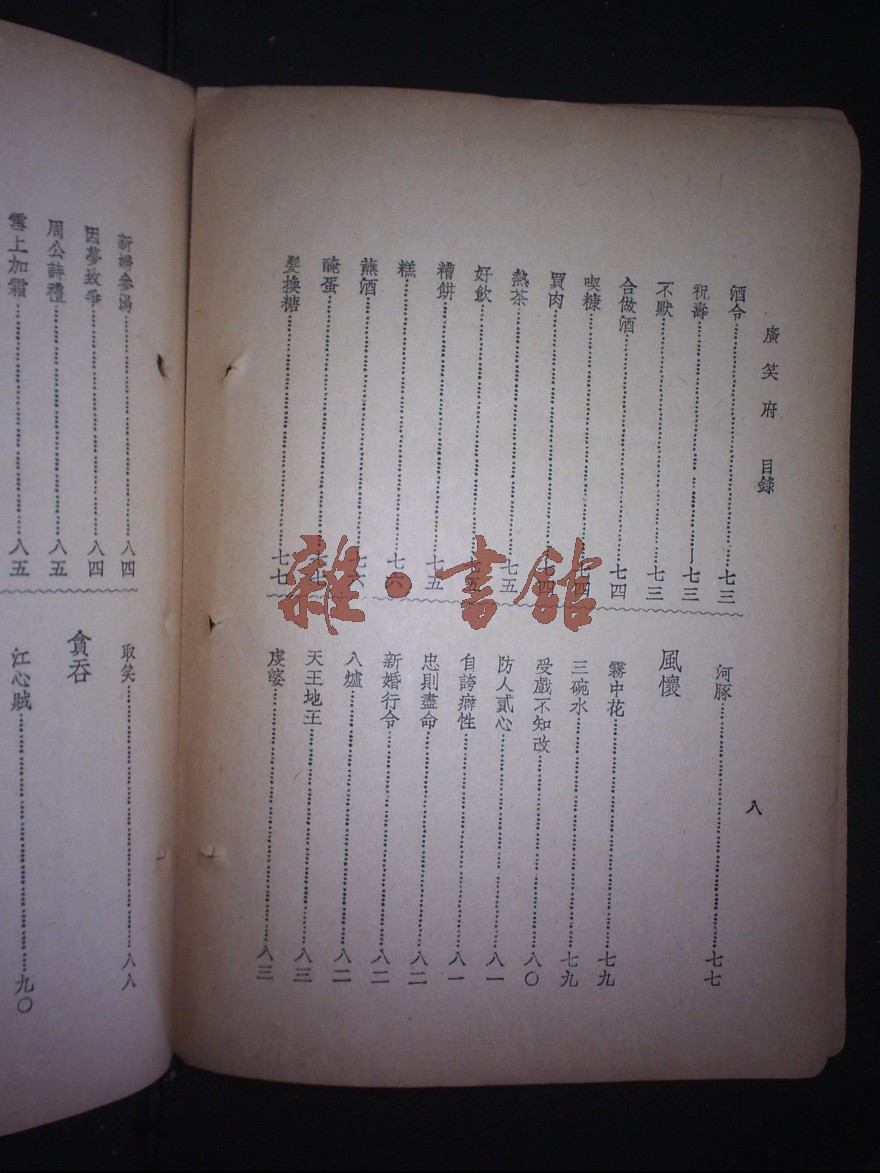 廣笑府 目錄
八
酒令……七三
祝壽……七三
不默……七三
合做酒……七四
喫糠……七四
買肉……七四
熱茶……七五
好飲……七五
糟餅……七五
糕……七六
蘸酒……七六
醃蛋……
髮換糖……七七
河豚……七七
風懷
霧中花……七九
三碗水……七九
受戲不知改……八〇
防人貳心……八一
自誇癖性……八一
忠則盡命……八二
新婚行令……八二
入爐……八二
天王地王……八三
虔婆……八三
新婦參湯……八四
因夢致爭……八四
周公詩禮……八五
雪上加霜……八五
取笑……八八
貪吞
江心賊……九〇
雜·書館